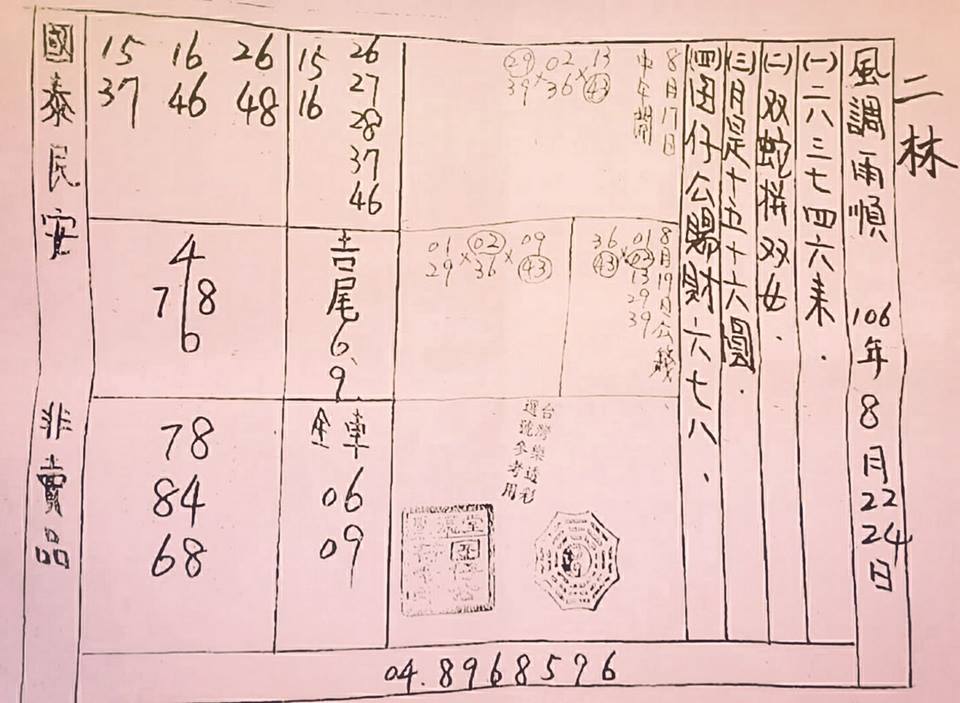 二林
風調雨順 106年8月22 24日
(一)二八三七四六来.
(二)双蛇拼双女.
(三)月是十五十六圓.
(四)囝仔公賜財六七八.
8月17日
中午開
13 02 29
43×36×39
8月19日公籤
01 02 13 29 39
36
43
09 02 01
43×36×29
台灣樂透彩
選號參考用
15 16
26 27 28 37 46
吉尾6.9
全車
06
09
15 16 26
37 46 48
4
7 8
6
78
84
68
國泰民安 非賣品
04.8968576